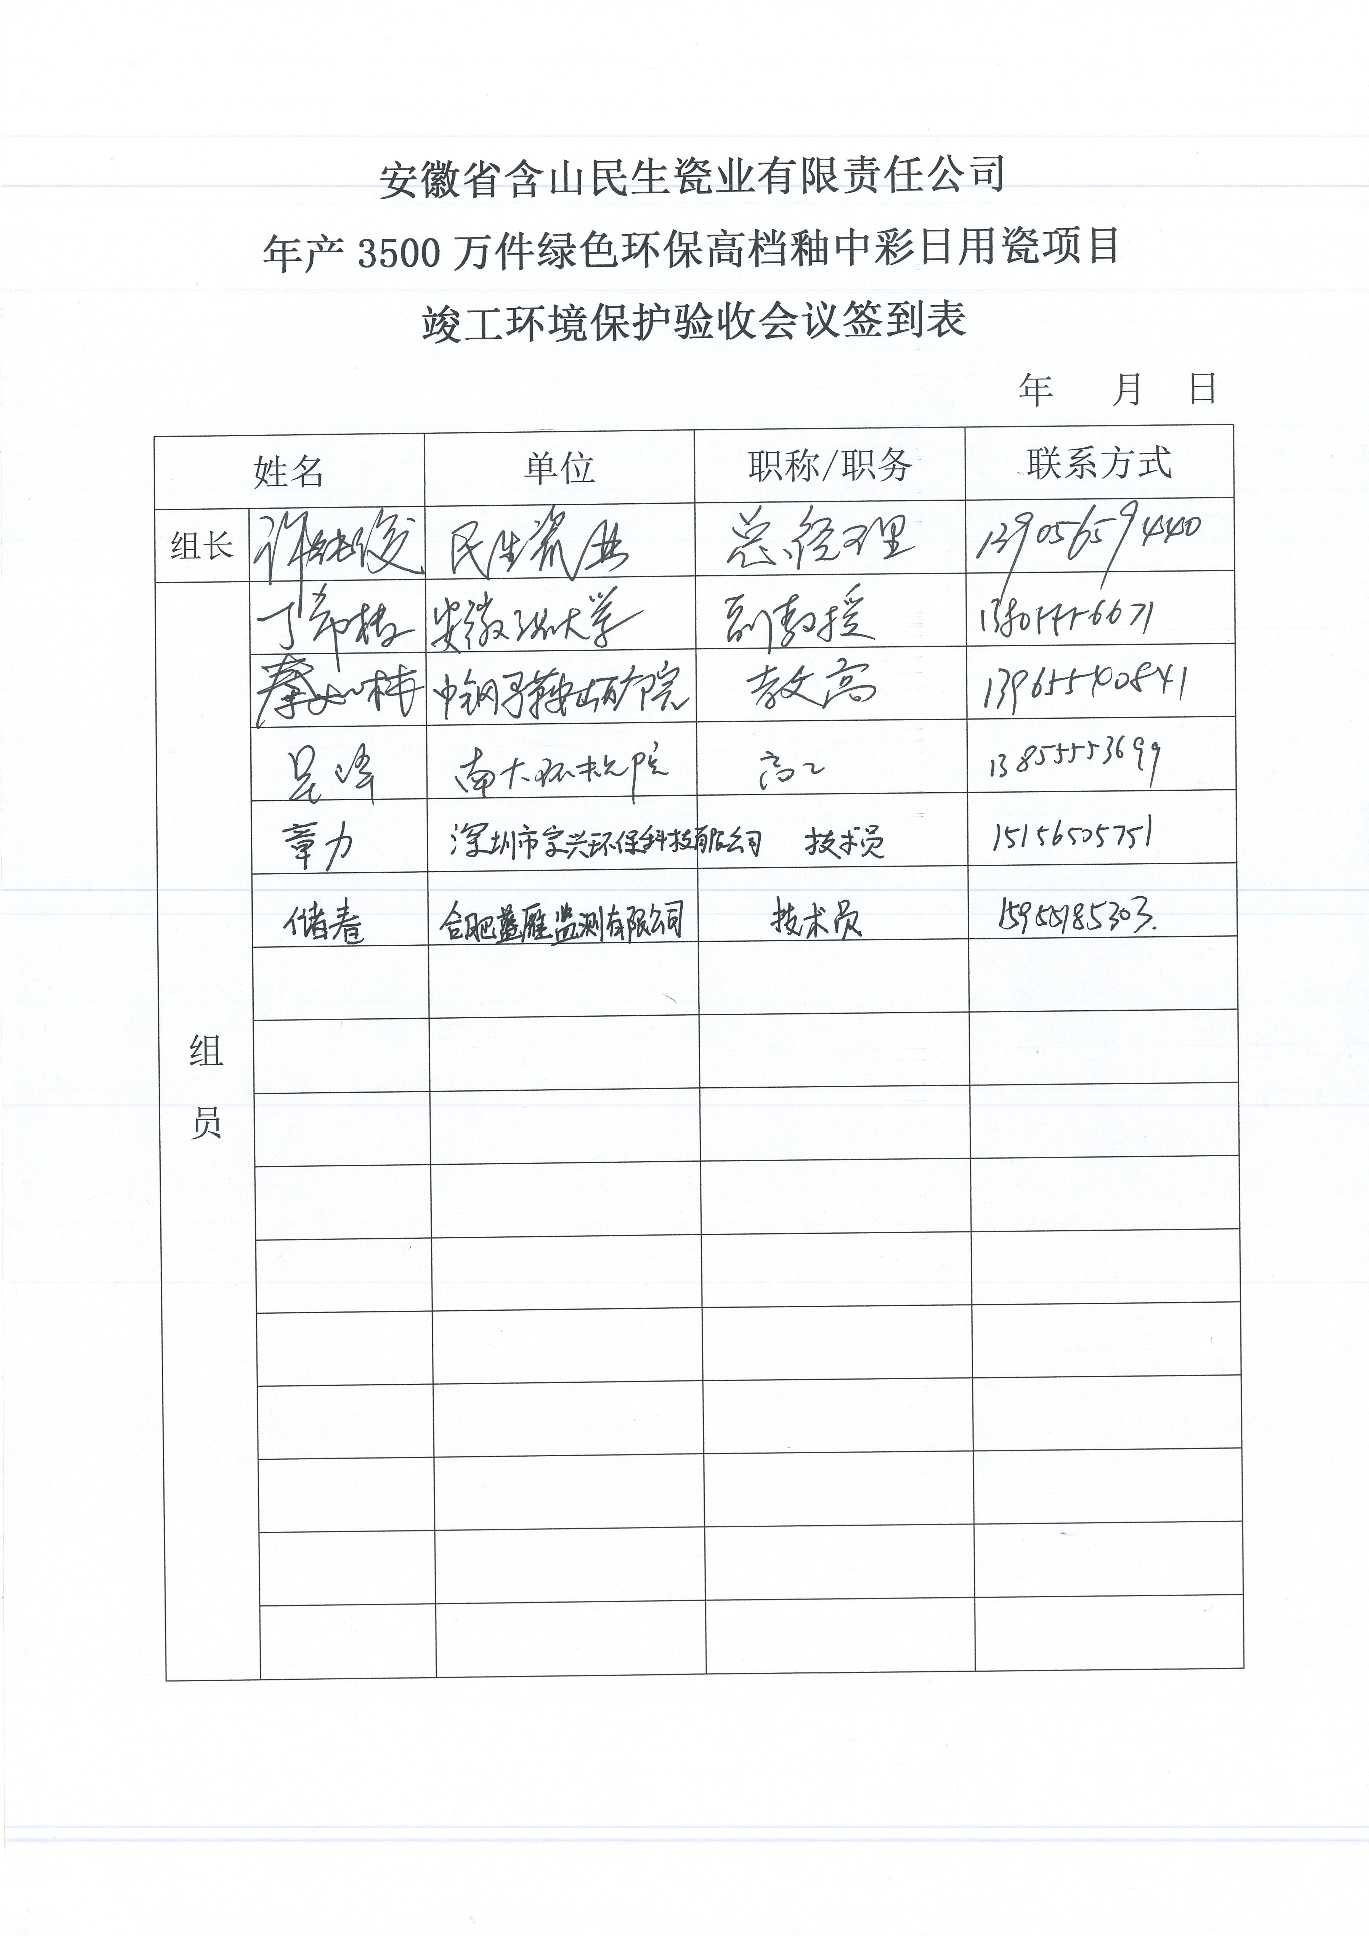 安徽省含山民生瓷业有限责任公司
年产 3500 万件绿色环保高档釉中彩日用瓷项目
竣工环境保护验收会议签到表
年 月 日
姓名 单位 职称/职务 联系方式
组长 许 俊 民生瓷业 总经理 13905659440
丁希楼 安徽工业大学 副教授
秦 林 中钢马鞍山矿院 教高 13965540841
吴峰 南大环规院 高工 13855553699
章力 深圳市宗兴环保科技有限公司 技术员 15156505751
储春 合肥蓝雁监测有限公司 技术员 15955185303.
组
员